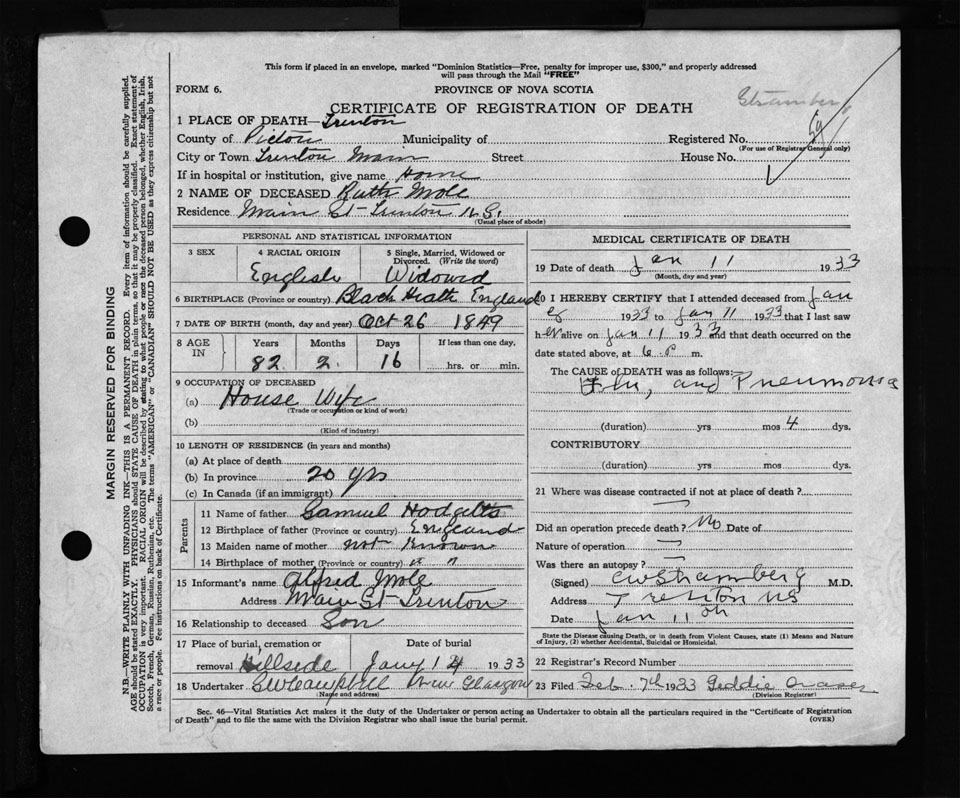 This form if placed in an envelope, marked "Dominion Statistics—Free, penalty for improper use, $300," and properly addressed
will pass through the Mail "FREE"
FORM 6.
PROVINCE OF NOVA SCOTIA
Stramberg
CERTIFICATE OF REGISTRATION OF DEATH
1 PLACE OF DEATH—Trenton
County of Pictou Municipality of Registered No.
(For use of Registrar General only)
City or Town Trenton Main Street House No.
If in hospital or institution, give name Home
2 NAME OF DECEASED Ruth Mole
Residence Main St Trenton N.S.
(Usual place of abode)
PERSONAL AND STATISTICAL INFORMATION
3 SEX 4 RACIAL ORIGIN 5 Single, Married, Widowed or Divorced. (Write the word)
English Widowed
6 BIRTHPLACE (Province or country) Black Heath England
7 DATE OF BIRTH (month, day and year) Oct 26 1849
8 AGE IN Years Months Days If less than one day.
82 2 16 hrs. or min.
9 OCCUPATION OF DECEASED
(a) House Wife
(Trade or occupation or kind of work)
(b)
(Kind of industry)
10 LENGTH OF RESIDENCE (in years and months)
(a) At place of death
(b) In province 20 yrs
(c) In Canada (if an immigrant)
Parents
11 Name of father Samuel Hodgetts
12 Birthplace of father (Province or country) England
13 Maiden name of mother not Known
14 Birthplace of mother (Province or country) " "
15 Informant's name Alfred Mole
Address Main St Trenton
16 Relationship to deceased Son
17 Place of burial, cremation or Date of burial
removal Hillside Jany 14 1933
18 Undertaker Campbell New Glasgow
(Name and address)
MEDICAL CERTIFICATE OF DEATH
19 Date of death Jan 11 1933
(Month, day and year)
20 I HEREBY CERTIFY that I attended deceased from Jan
8 1933 to Jan 11 1933 that I last saw
h er alive on Jan 11 1933 and that death occurred on the
date stated above, at 6 P. m.
The CAUSE of DEATH was as follows:
Flu, and Pneumonia
(duration) yrs mos 4 dys.
CONTRIBUTORY
(duration) yrs mos dys.
21 Where was disease contracted if not at place of death?
Did an operation precede death? No Date of
Nature of operation —
Was there an autopsy? —
(Signed) CW Stramberg M.D.
Address Trenton NS
Date Jan 11th
State the Disease causing Death, or in death from Violent Causes, state (1) Means and Nature
of Injury, (2) whether Accidental, Suicidal or Homicidal.
22 Registrar's Record Number
23 Filed Feb 7th 1933 Geddie Fraser
(Division Registrar)
Sec. 46—Vital Statistics Act makes it the duty of the Undertaker or person acting as Undertaker to obtain all the particulars required in the "Certificate of Registration
of Death" and to file the same with the Division Registrar who shall issue the burial permit.
(OVER)
MARGIN RESERVED FOR BINDING
N.B.—WRITE PLAINLY WITH UNFADING INK—THIS IS A PERMANENT RECORD. Every item of information should be carefully supplied.
AGE should be stated EXACTLY. PHYSICIANS should STATE CAUSE OF DEATH in plain terms, so that it may be properly classified. Exact statement of
OCCUPATION is very important. RACIAL ORIGIN will be described by stating to what people or race the deceased person belonged, whether English, Irish,
Scotch, French, German, Russian, Ruthenian, etc. The terms "AMERICAN" or "CANADIAN" SHOULD NOT BE USED as they express citizenship but not
a race or people. Fee instructions on back of Certificate.